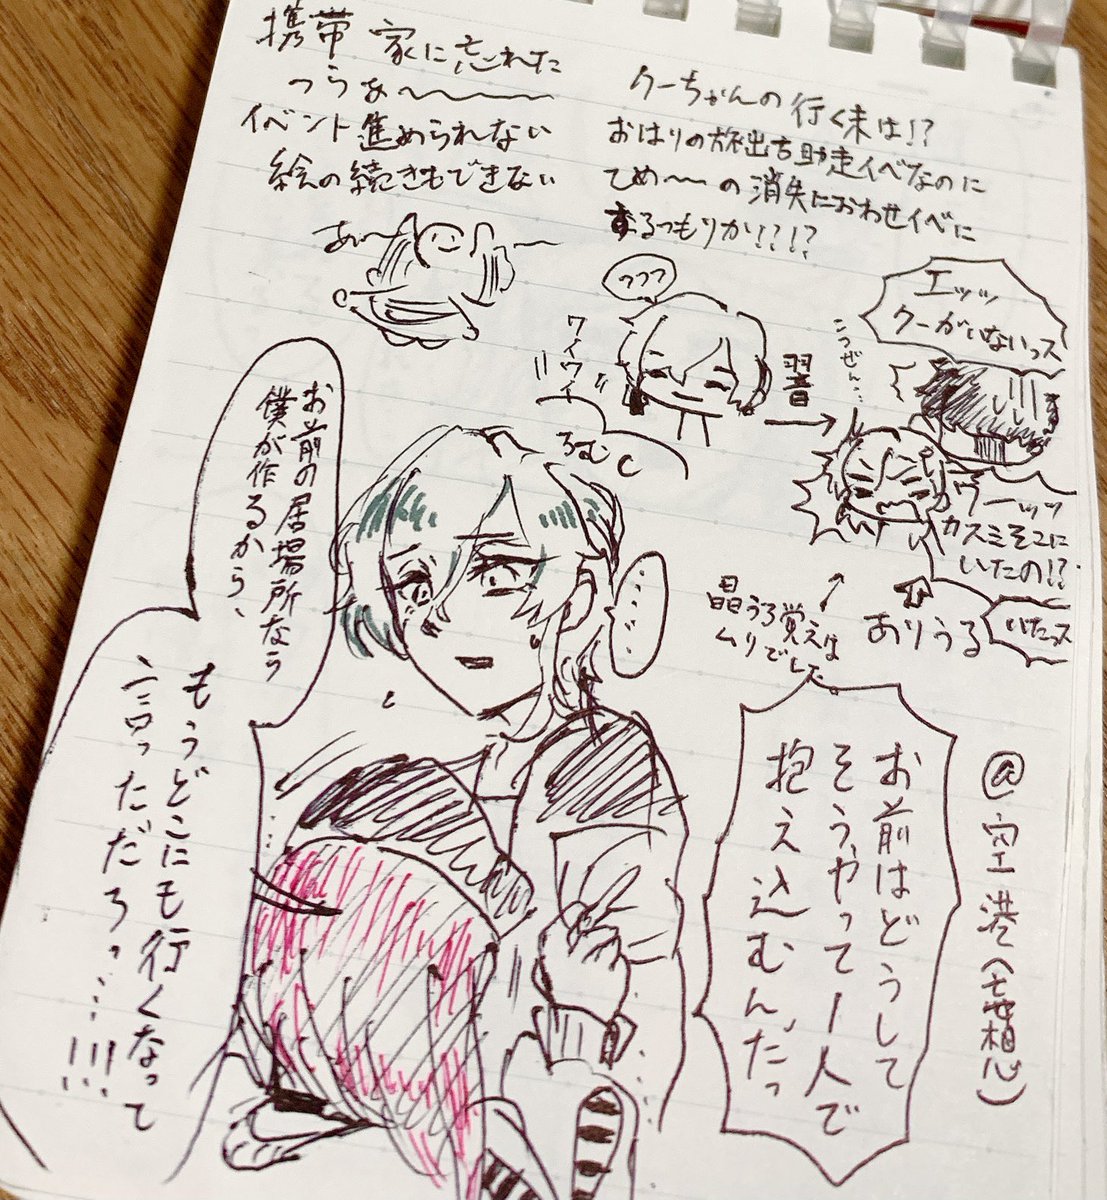 携帯 家に忘れた
つらぁ〜〜〜
イベント進められない
絵の続きもできない
あ〜
クーちゃんの行く末は!?
おはりの放出古助走イベなのに
てめ〜〜の消失におわせイベに
するつもりか!?!?
フフフ
ワイワイ
翌音
エッッ
クーがいないっス
こつぜん…
ウーッッ
カスミそこに
いたの!?
いたっス
ありうる
晶うろ覚えは
ムリでした。
お前の居場所なら
僕が作るから、
もうどこにも行くなって
言っただろっ…!!!
……
@空港(妄想)
お前はどうして
そうやって1人で
抱え込むんだっ